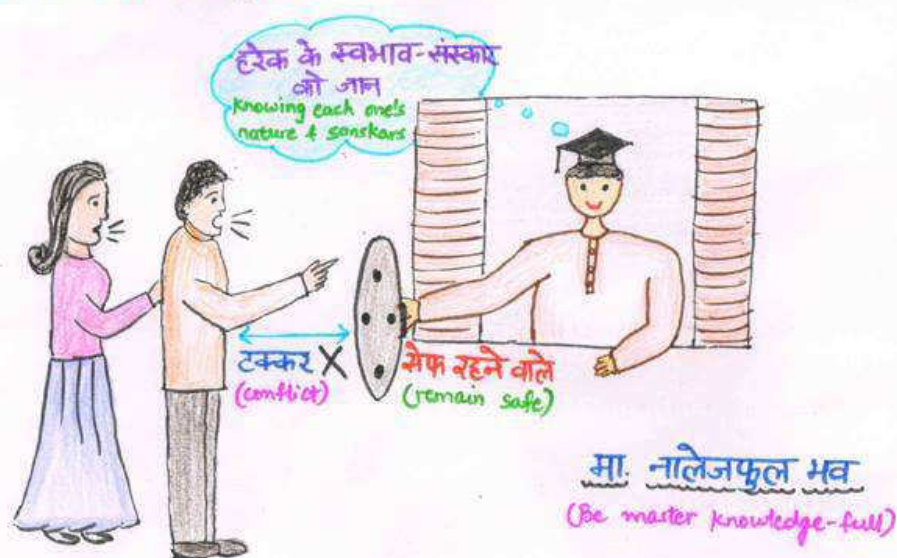 हरेक के स्वभाव-संस्कार
को जान
Knowing each one's
nature & sanskars
टक्कर X
(conflict)
सेफ रहने वाले
(remain safe)
मा. नालेजफुल भव
(Be master knowledge-full)